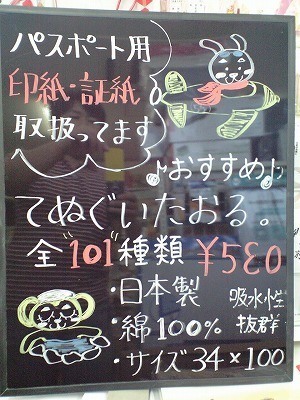 パスポート用
印紙・証紙
取扱ってます
♪おすすめ♪
てぬぐいたおる。
全"101"種類 ¥580
・日本製
・綿100%
・サイズ34×100
吸水性
抜群